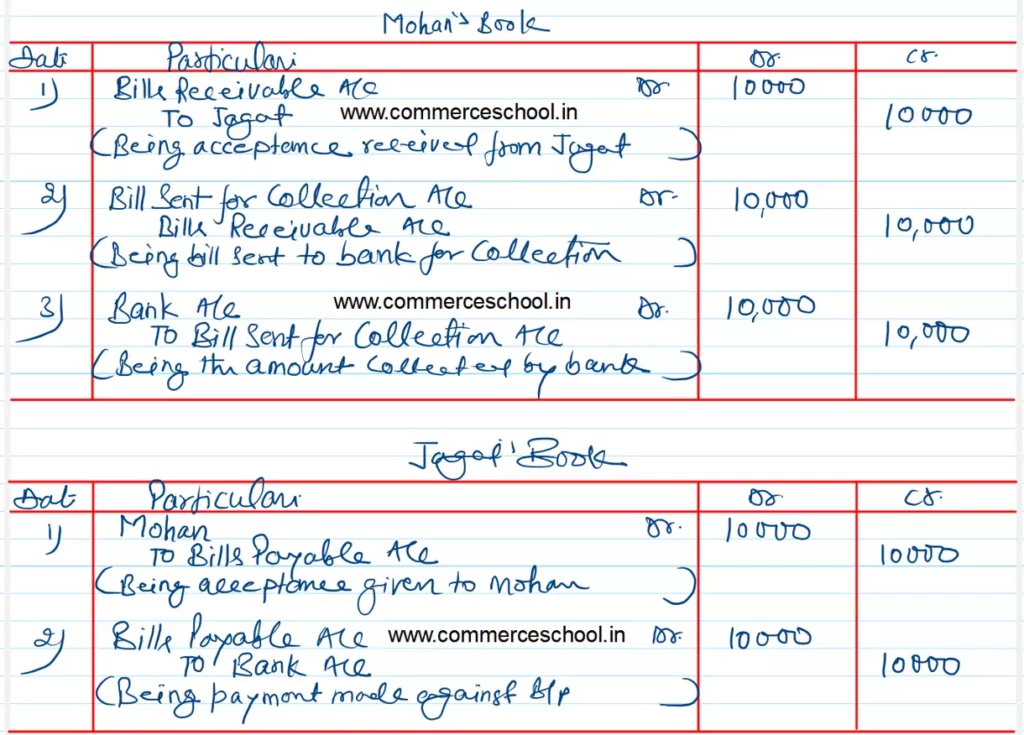 Mohan's Book
Date Particulars Dr. Cr.
1) Bills Receivable A/c Dr 10000
To Jagat www.commerceschool.in 10000
(Being acceptance received from Jagat)
2) Bill Sent for Collection A/c Dr. 10,000
Bills Receivable A/c 10,000
(Being bill sent to bank for Collection)
3) Bank A/c www.commerceschool.in Dr. 10,000
To Bill Sent for Collection A/c 10,000
(Being the amount collected by bank)
Jagat's Book
Date Particulars Dr Cr.
1) Mohan Dr. 10000
To Bills Payable A/c 10000
(Being acceptance given to Mohan)
2) Bills Payable A/c www.commerceschool.in Dr. 10000
To Bank A/c 10000
(Being payment made against B/P)